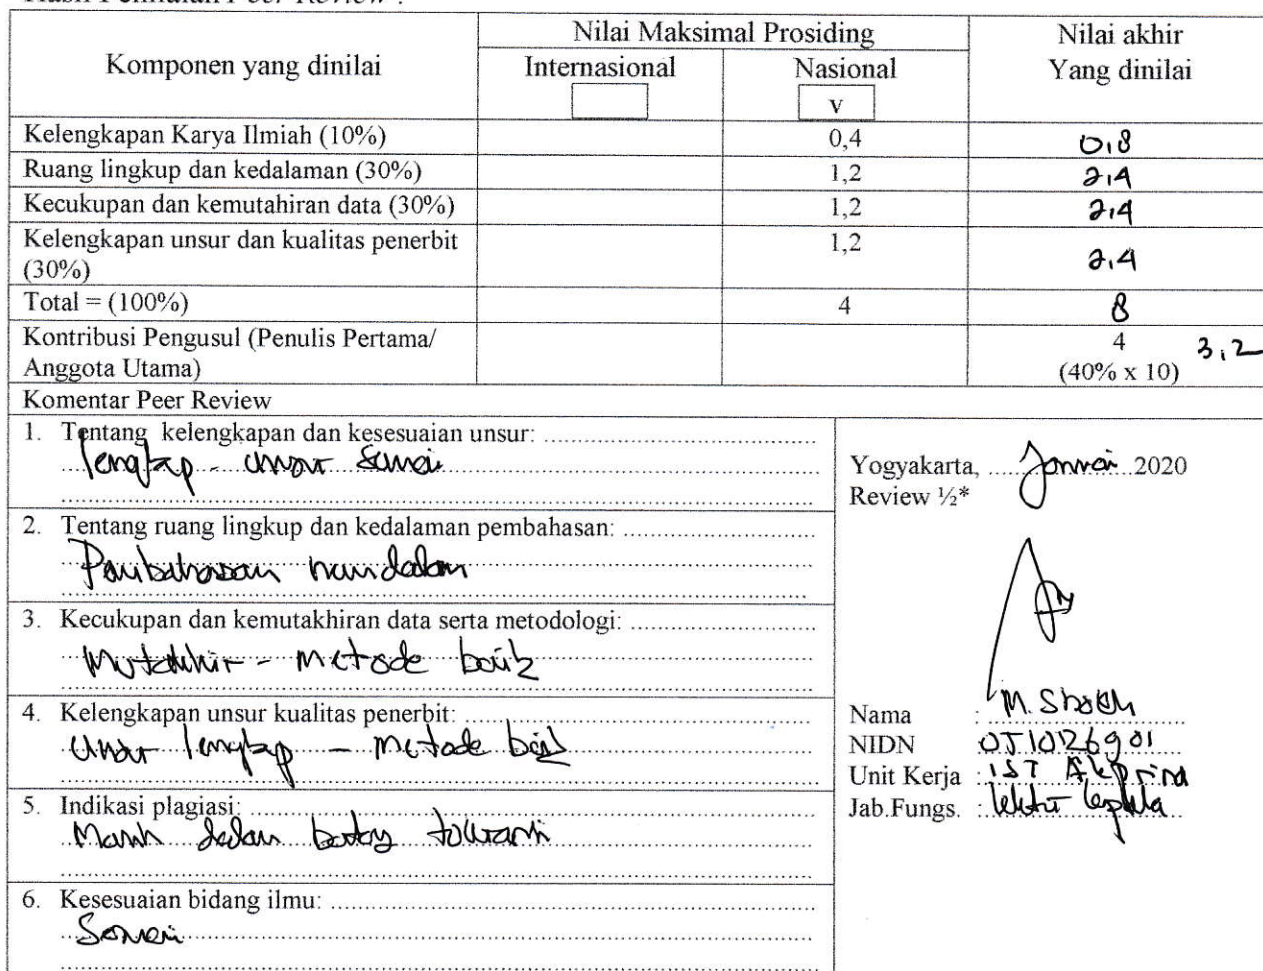 Hasil Penilaian Peer Review :
Komponen yang dinilai
Nilai Maksimal Prosiding
Nilai akhir
Yang dinilai
Internasional
Nasional
v
Kelengkapan Karya Ilmiah (10%) 0,4 0,8
Ruang lingkup dan kedalaman (30%) 1,2 2,4
Kecukupan dan kemutahiran data (30%) 1,2 2,4
Kelengkapan unsur dan kualitas penerbit 1,2 2,4
(30%)
Total = (100%) 4 8
Kontribusi Pengusul (Penulis Pertama/ 4 3,2
Anggota Utama) (40% x 10)
Komentar Peer Review
1. Tentang kelengkapan dan kesesuaian unsur:
lengkap - unsur sesuai
2. Tentang ruang lingkup dan kedalaman pembahasan:
Pembahasan mendalam
3. Kecukupan dan kemutakhiran data serta metodologi:
Mutakhir - metode baik
4. Kelengkapan unsur kualitas penerbit:
Unsur lengkap - metode baik
5. Indikasi plagiasi:
Masih dalam batas toleransi
6. Kesesuaian bidang ilmu:
Sesuai
Yogyakarta, Januari 2020
Review ½*
Nama : M. Sholeh
NIDN 0510126901
Unit Kerja : IST Akprind
Jab.Fungs. : Lektor Kepala